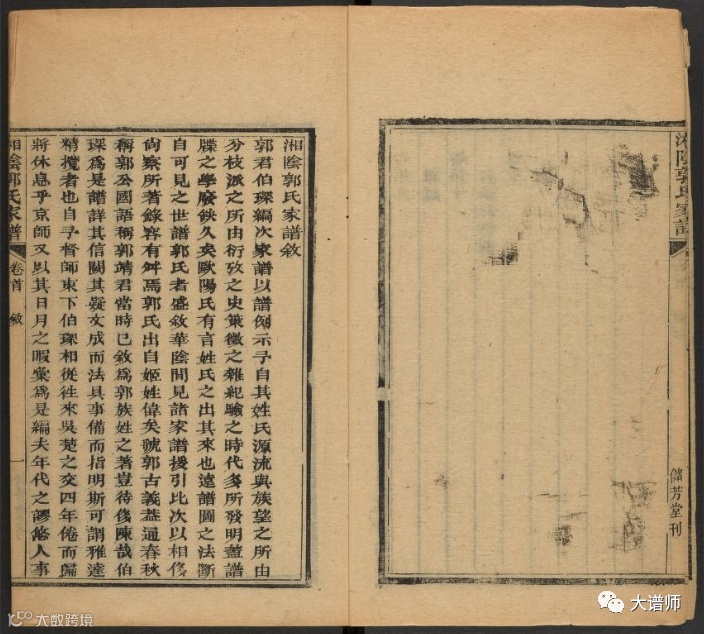 湘陰郭氏家譜
儲芳堂刊
湘陰郭氏家譜敘
郭君伯琛編次家譜以譜例示予自其姓氏源流與族望之所由
分枝派之所由衍攷之史策徵之雜紀驗之時代多所發明葢譜
牒之學廢缺久矣歐陽氏有言姓氏之出其來也遠譜圖之法斷
自可見之世譜郭氏者盛敘華陰間見諸家譜援引比次以相侈
尙察所著錄容有舛焉郭氏出自姬姓偉矣虢郭古義葢通春秋
稱郭公國語稱郭靖君當時已敘爲郭族姓之著豈待後陳哉伯
琛爲是譜詳其信闕其疑文成而法具事備而指明斯可謂雅達
精攬者也自予督師東下伯琛相從往來吳楚之交四年倦而歸
將休息乎京師又以其日月之暇彙爲是編夫年代之謬悠人事
湘陰郭氏家譜 卷首 敘 一
大數跨境
大谱师